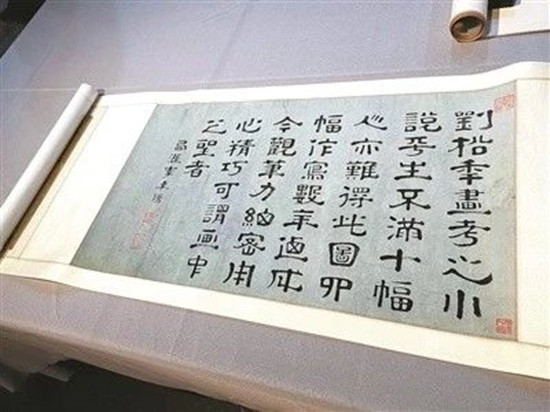 劉松年畫考之小
說平生不滿十幅
人亦難得此圖四
幅作寫數年迺成
今觀筆力細密用
心精巧可謂画中
之聖者